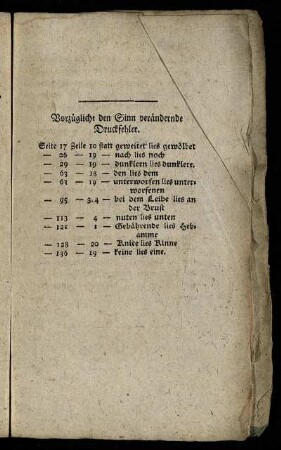 Vorzügliche den Sinn verändernde
Druckfehler.
Seite 17 Zeile 10 statt geweitet lies gewölbet
— 26 — 19 — nach lies noch
— 29 — 19 — dunklern lies dunklere.
— 63 — 18 — den lies dem
— 63 — 19 — unterworfen lies unter-
worfenen
— 95 — 3.4 — bei dem Leibe lies an
der Brust
— 113 — 4 — nuten lies unten
— 121 — 1 — Gebährende lies Heb-
amme
— 128 — 20 — Kniee lies Kinne
— 136 — 19 — keine lies eine.